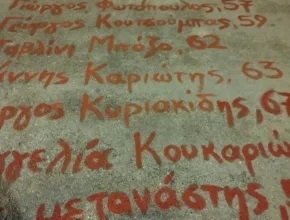 Γιώργος Φωτόπουλος, 57
Γεώργιος Κουτσούμπας, 59.
αβλίνι Μπόζο, 62
άννης Καριώτης, 63
ργος Κυριακίδης, 67
γγελία Κουκαριώ
μετανάστης,